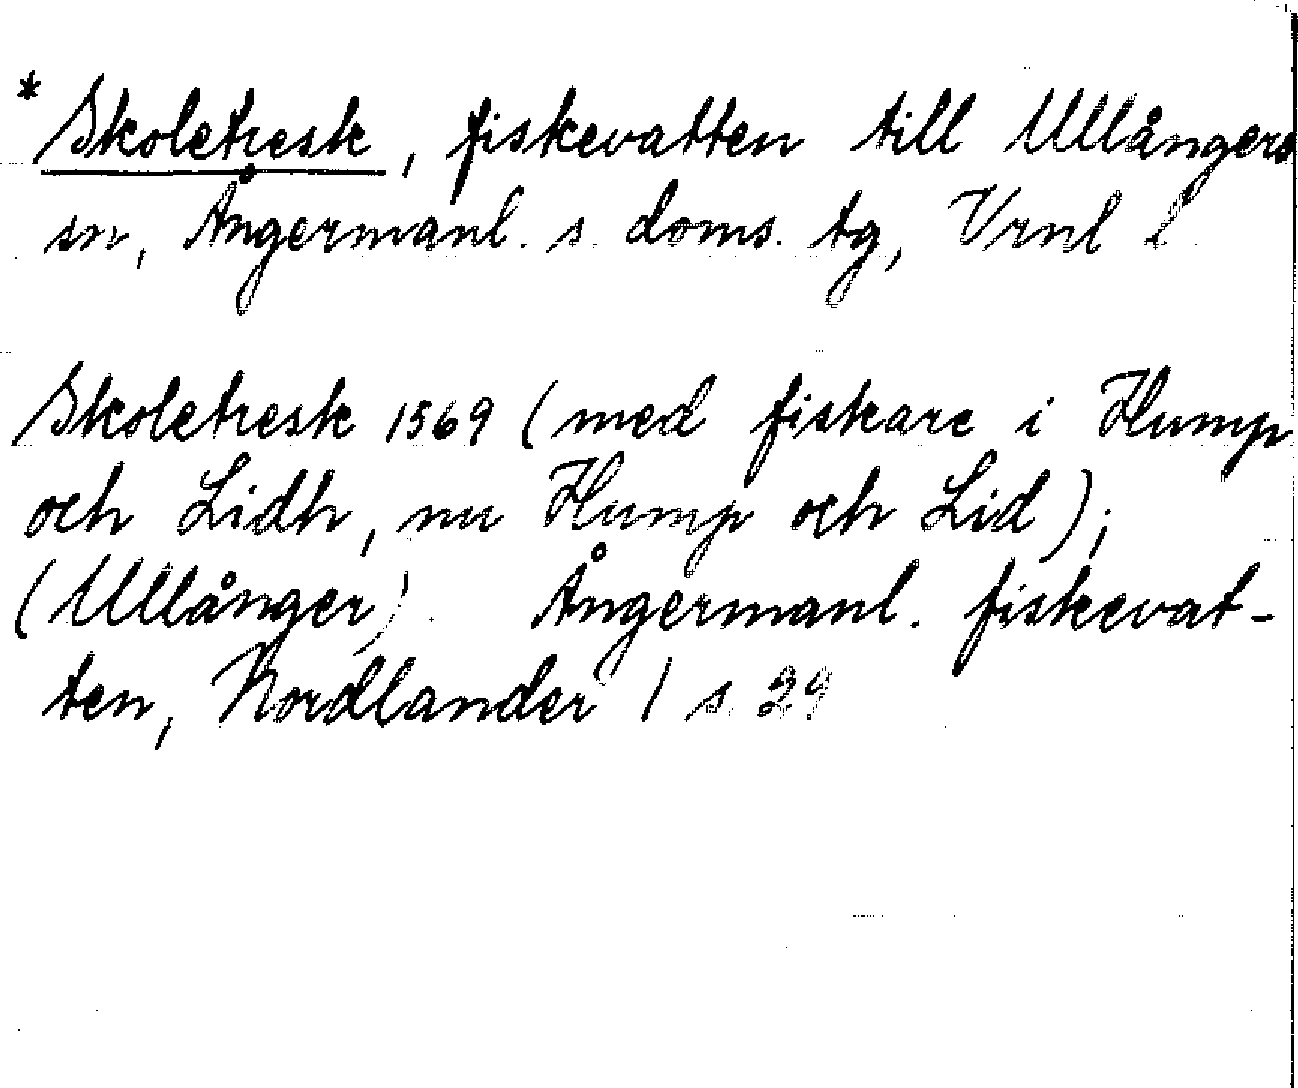 * Skoletresk, fiskevatten till Ullångers
sn, Ångermanl. s. doms. tg, Vrnl l
Skoletresk 1569 (med fiskare i Hump
och Lidh, nu Hump och Lid);
(Ullånger). Ångermanl. fiskevat-
ten, Nordlander 1 s. 29